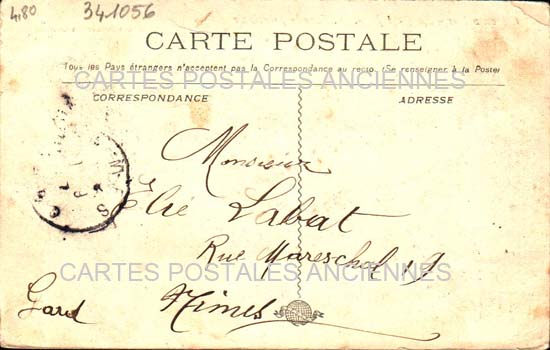 4,80 341056
CARTE POSTALE
Tous les Pays étrangers n'acceptent pas la Correspondance au recto. (Se renseigner à la Poste)
CARTES POSTALES ANCIENNES
CORRESPONDANCE ADRESSE
Monsieur
Elie Labat
Rue Mareschal
CARTES POSTALES ANCIENNES
Gard Nimes